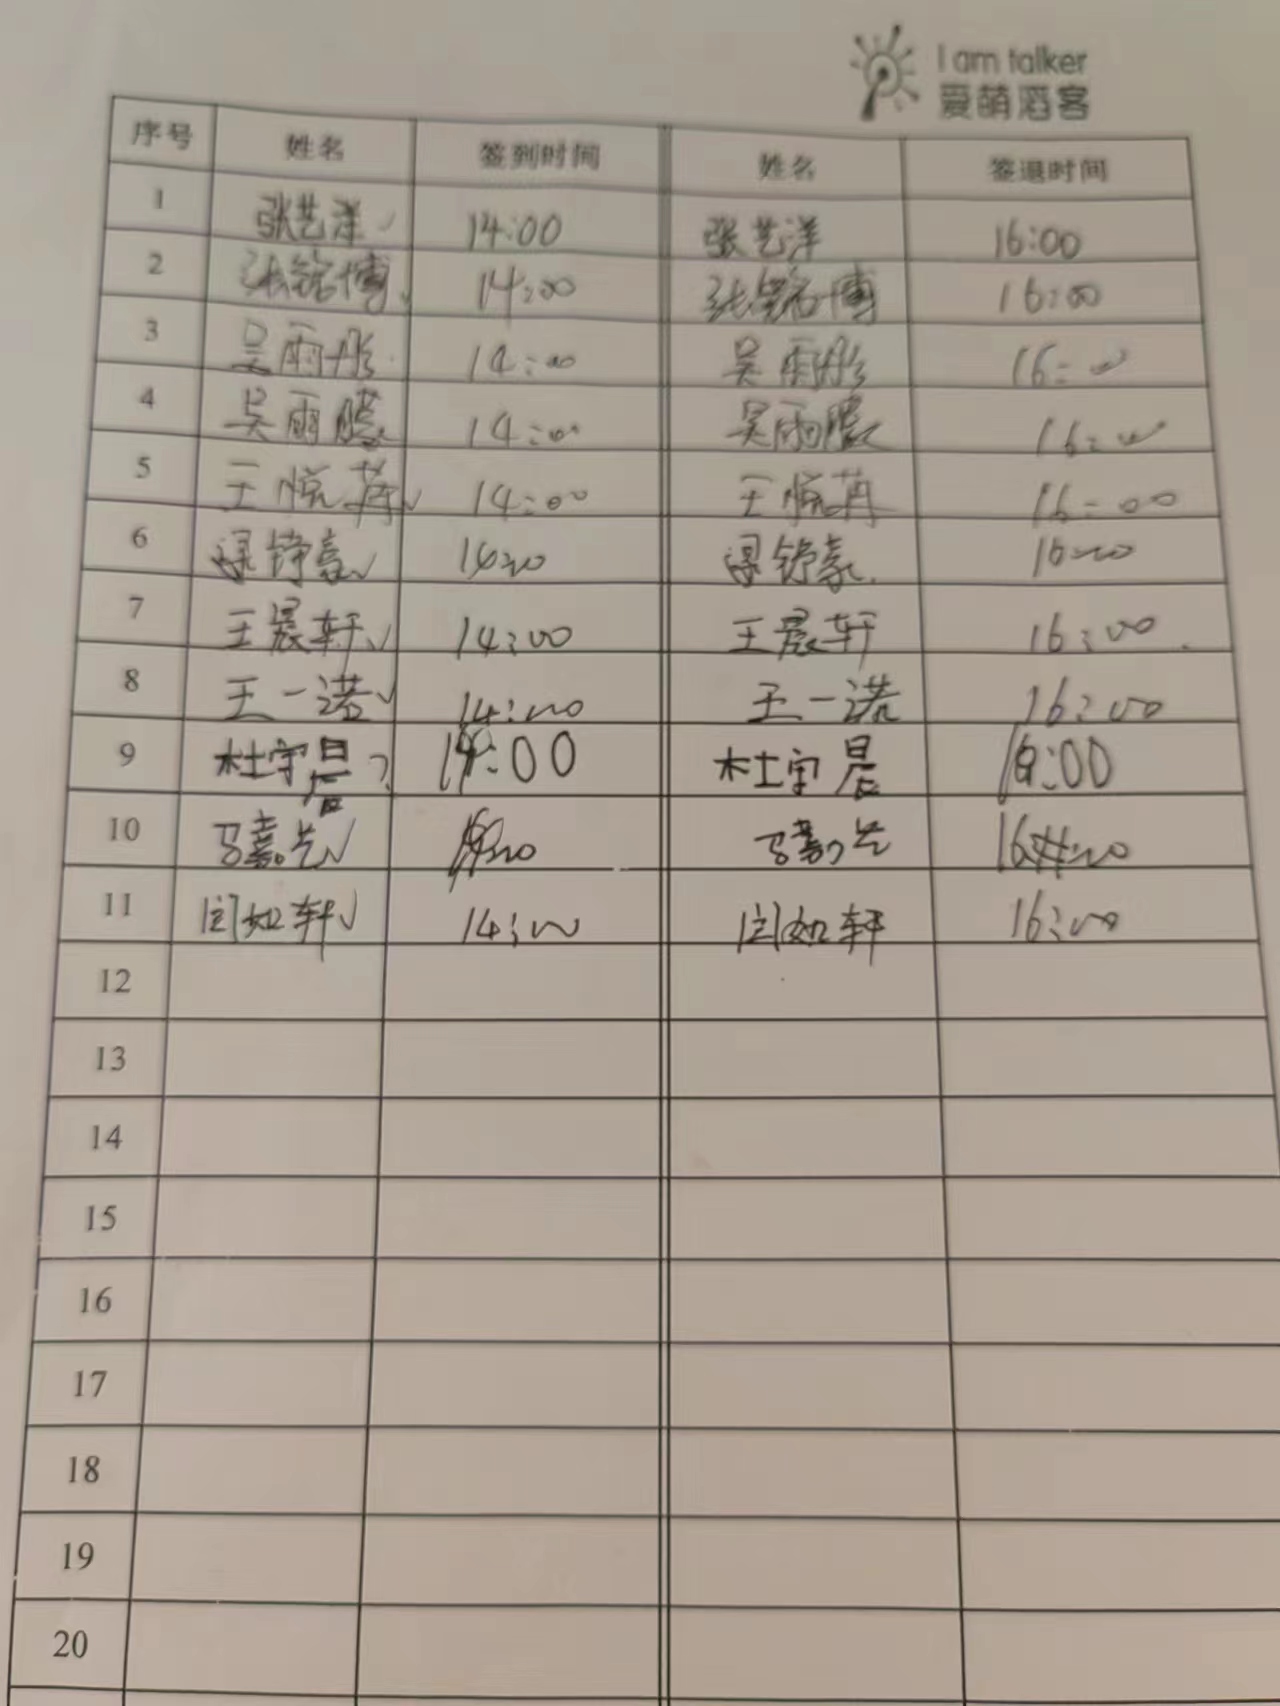 I am talker
爱萌滔客
序号 姓名 签到时间 姓名 签退时间
1 张艺洋 14:00 张艺洋 16:00
2 张铭博 14:00 张铭博 16:00
3 吴雨彤 14:00 吴雨彤 16:00
4 吴雨朦 14:00 吴雨朦 16:00
5 王悦苒 14:00 王悦苒 16:00
6 梁铮豪 14:00 梁铮豪 16:00
7 王晨轩 14:00 王晨轩 16:00
8 王一诺 14:00 王一诺 16:00
9 杜宇晨 14:00 杜宇晨 16:00
10 马嘉艺 14:00 马嘉艺 16:00
11 闫如轩 14:00 闫如轩 16:00
12
13
14
15
16
17
18
19
20